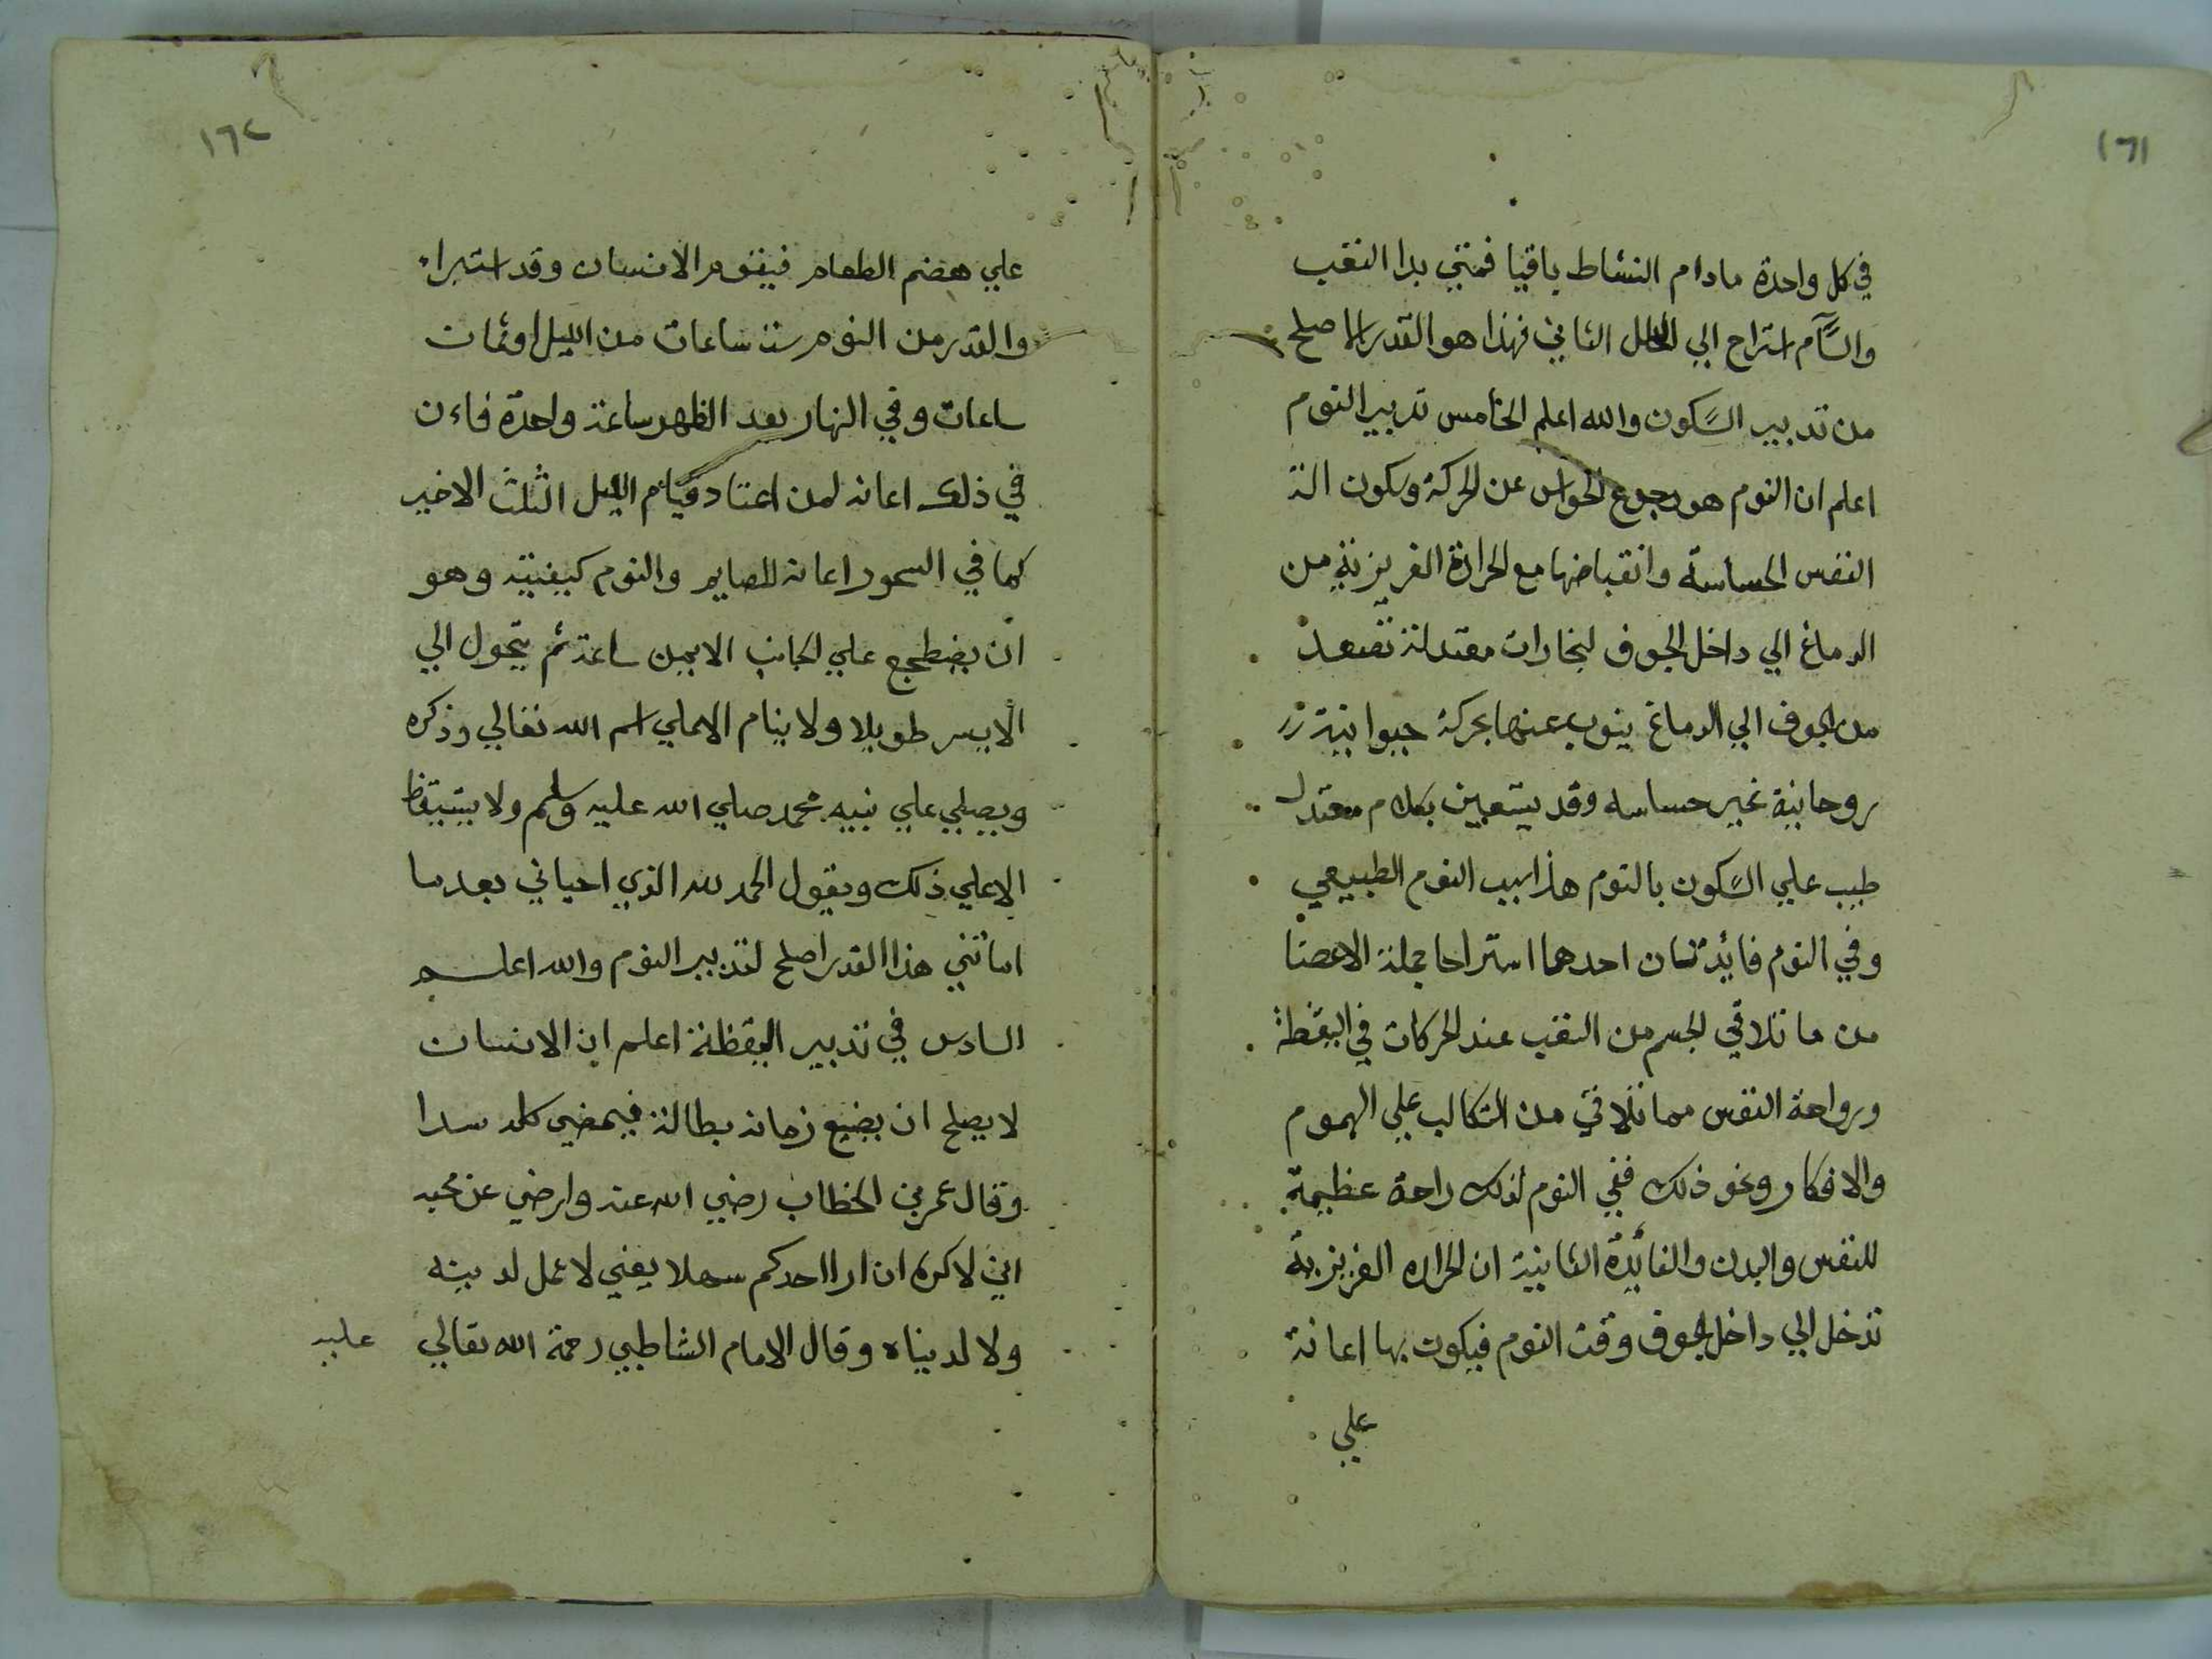 ١٦١
في كل واحدة مادام النشاط باقيا فمتي بدا التعب
والسَّآم استراح الي الثاني فهذا هو القدر الاصلح
من تدبير السّكون والله اعلم الخامس تدبير النوم
اعلم ان النوم هو رجوع الحواس عن الحركة وسكون الن
النفس الحساسة وانقباضها مع الحرارة الغريزية من
الدماغ الي داخل الجوف لبخارات معتدلة تصعد
من الجوف الي الدماغ ينوب عنها بحركة حيوانية
روحانية غير حساسه وقد يستعين بكلام معتدل
طيب علي السّكون بالنوم هاذا سبب النوم الطبيعي
وفي النوم فائدتان احدهما استراحا جملة الاعضا
من ما تلاقي الجسم من التعب عند الحركات في اليقظة
وراحة النفس مما تلاقي من التكالب علي الهموم
والافكار ونحو ذلك ففي النوم لذلك راحة عظيمة
للنفس والبدن والفائدة الثانية ان الحراره الغريزية
تدخل الي داخل الجوف وقت النوم فيكون بها اعانة
علي
١٦٢
علي هضم الطعام فيقوم الانسان وقد استبراء
والقدر من النوم ستة ساعات من الليل او ثمان
ساعات وفي النهار بعد الظهر ساعة واحدة فاءن
في ذلك اعانه لمن اعتاد قيام الليل الثلث الاخير
كما في السحور اعانه للصايم والنوم كيفيته وهو
ان يضطجع علي الجانب الايمن ساعة ثم يتحول الي
الايسر طويلا ولا ينام الا علي اسم الله تعالي وذكره
ويصلي علي نبيه محمد صلي الله عليه وسلم ولا يستيقظ
الا علي ذلك ويقول الحمد لله الذي احياني بعد ما
اماتني هذا القدر اصلح لتدبير النوم والله اعلم
السادس في تدبير اليقظة اعلم ان الانسان
لا يصلح ان يضيع زمانه بطالة فيمضي كله سدا
وقال عمر بن الخطاب رضي الله عنه وارضي عن محبه
اني لاكره ان ارا احدكم سهلا يعني لا عمل لدينه
ولا لدنياه وقال الامام الشاطبي رحمة الله تعالي
عليه